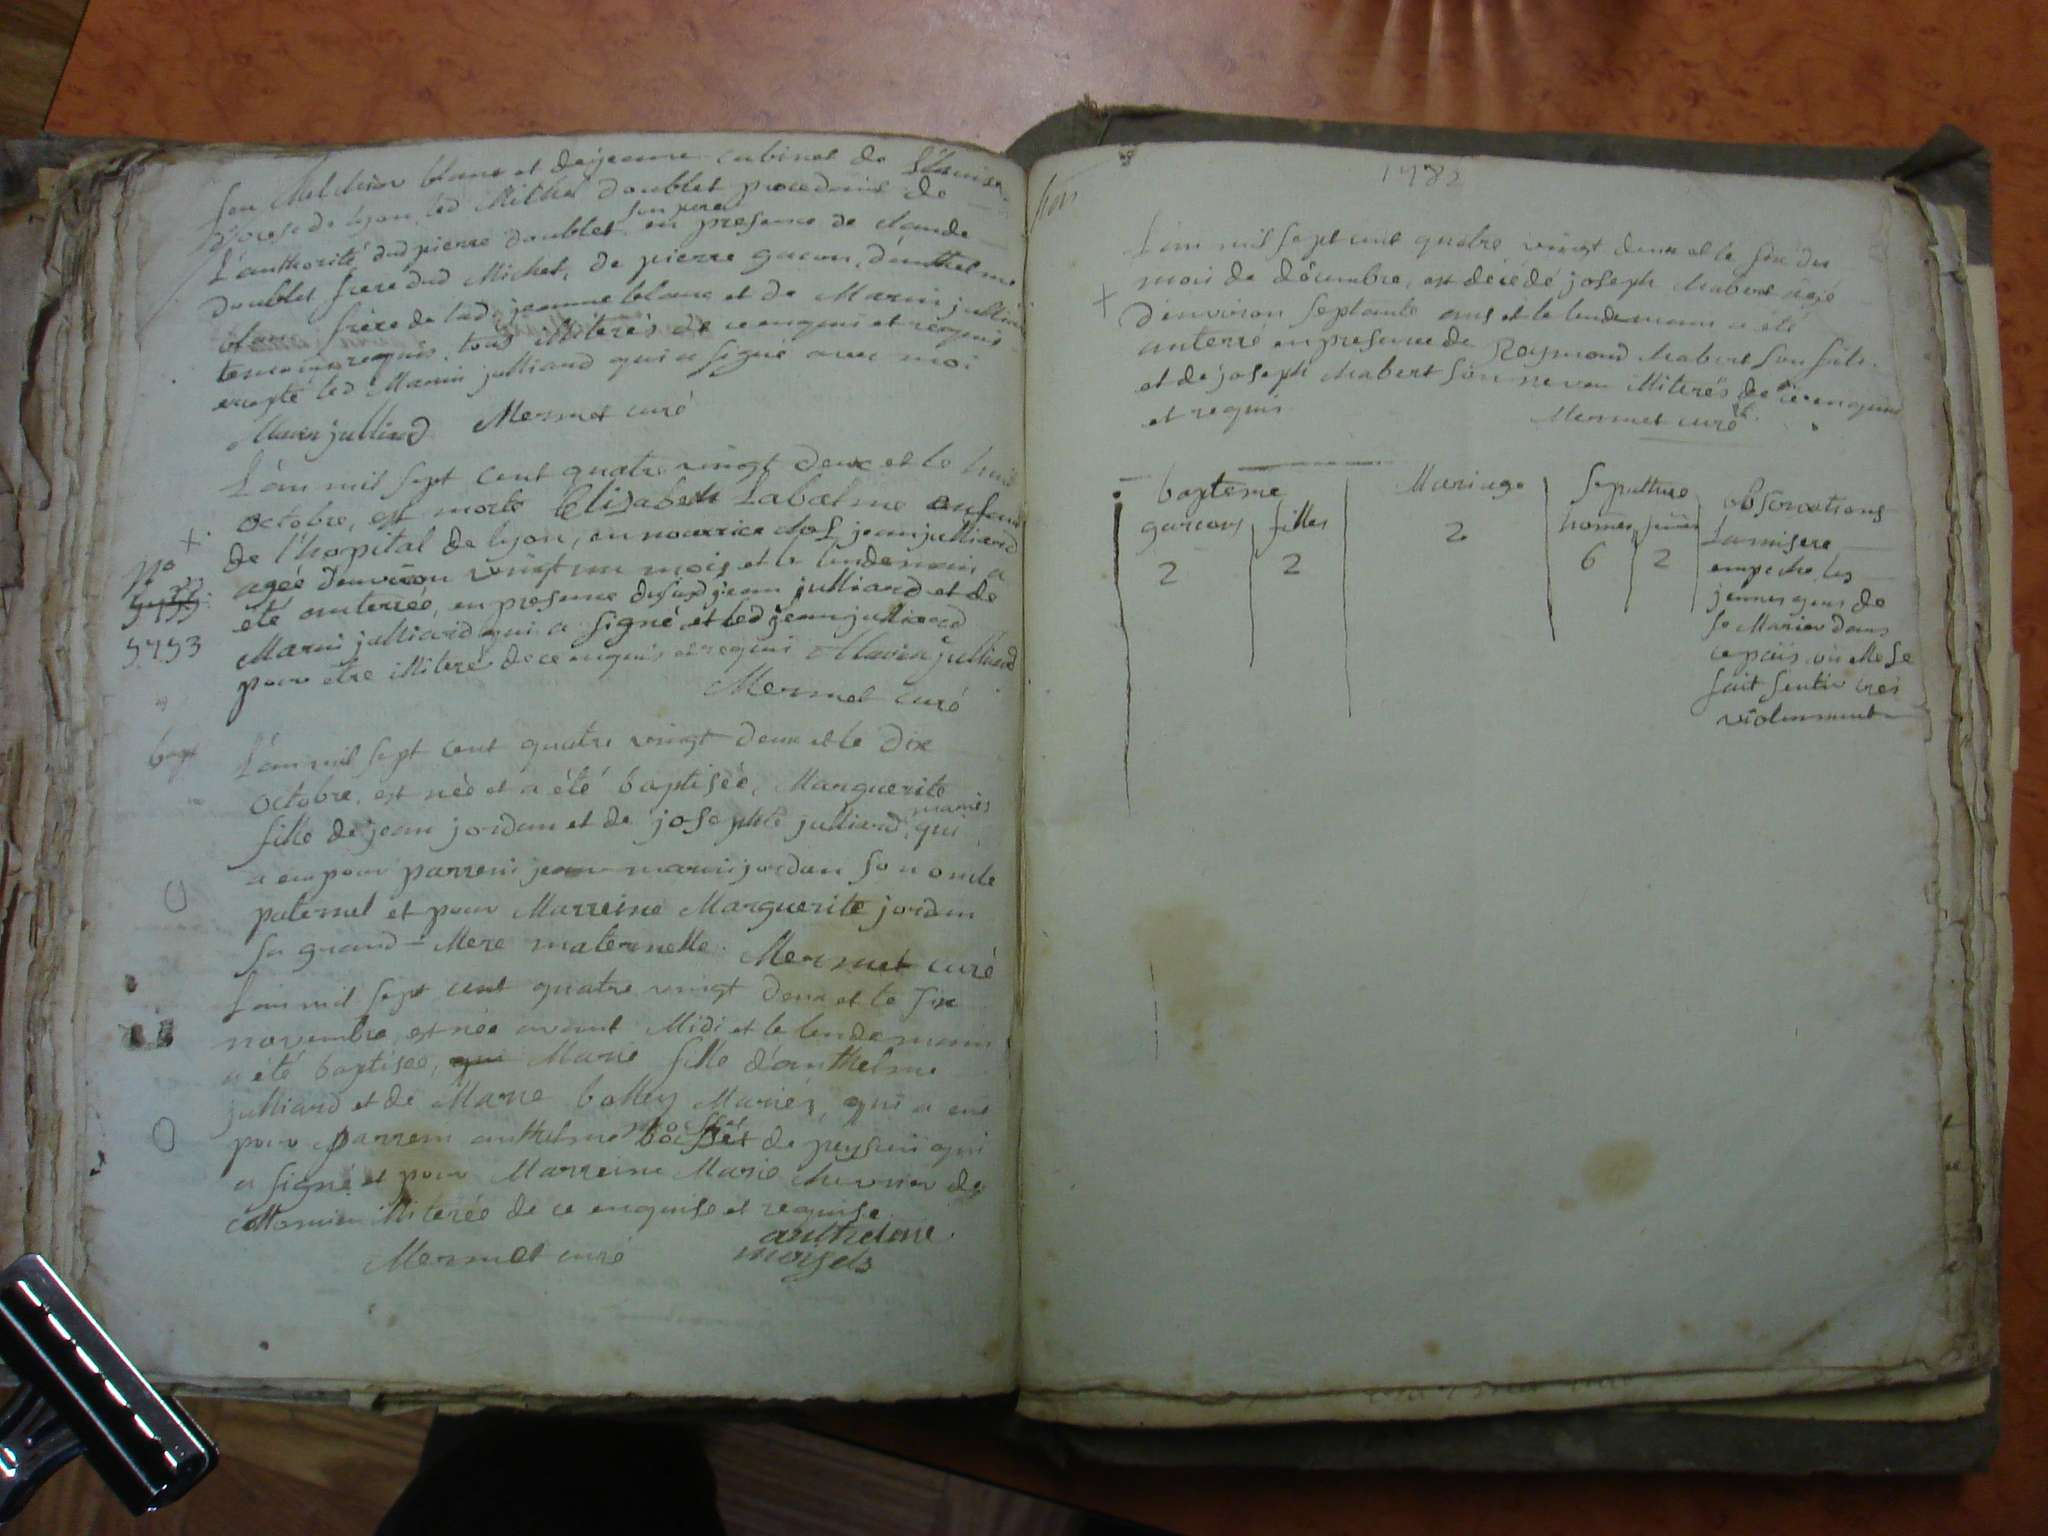 feu Melchior blanc et de jeanne cabinet de
de lyon led Michel doublet procedant de
L'authorité dud pierre doublet son pere en presence de claude
doublet frere dud Michel, de pierre gacon, d'anthelme
blanc frere de lad jeanne blanc et de Marin julliard
temoins requis tous illiterés de ce enquis et requis
excepté led Marin julliard qui a signé avec moi
Marin julliard Mermet curé
L'an mil sept cent quatre vingt deux et le huit
octobre, est morte Elizabeth Labalme enfant
de l'hopital de lyon, en nourrice chés jean julliard
agée d'environ vingt un mois et le lendemain a
été enterrée, en presence dusud jean julliard et de
Marin julliard qui a signé et led jean julliard
pour etre illiteré de ce enquis et requis Marin julliard
Mermet curé
+
no
5753
bapt
L'an mil sept cent quatre vingt deux et le dix
octobre, est née et a été baptisée, Marguerite
fille de jean jordan et de josephte julliard mariés qui
a eu pour parrein jean marin jordan son oncle
paternel et pour Marreine Marguerite jordan
sa grand-Mere maternelle. Mermet curé
L'an mil sept cent quatre vingt deux et le six
novembre, est née avant Midi et le lendemain
a été baptisée, qui Marie fille d'anthelme
julliard et de Marie bolley Mariés, qui a eu
pour parrein anthelme de peysieu qui
a signé et pour Marreine Marie chevrier de
illiterée de ce enquise et requise
anthelme
Mermet curé
1782
L'an mil sept cent quatre vingt deux et le six du
mois de décembre, est décédé joseph chabert agé
+
d'environ septante ans et le lendemain a été
enterré en presence de Raymond chabert son fils
et de joseph chabert son neveu illiterés de ce enquis
et requis
Mermet curé
bapteme Mariage sepulture observations
garcons filles homes
2 2 2 6 2
La misere
empeche les
jeunes gens de
se Marier dans
ce païs, où elle se
fait sentir tres
violemment